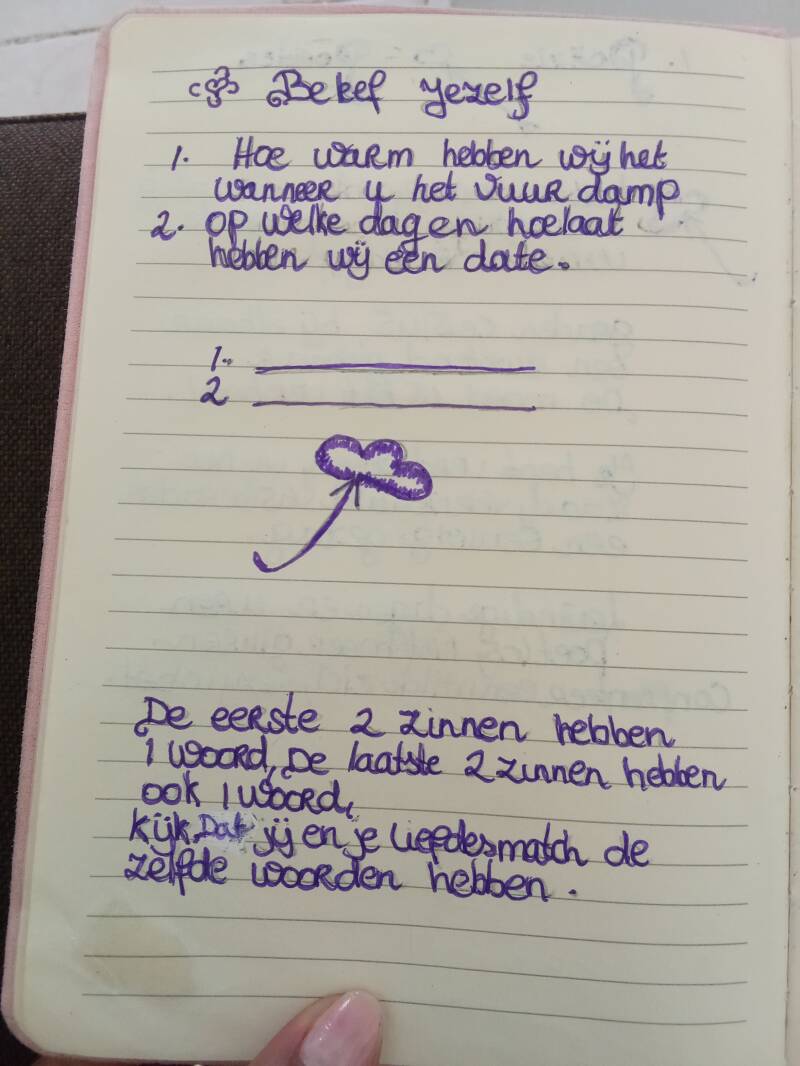 Bekef yezelf
1. Hoe warm hebben wij het
wanneer u het vuur damp
2. op welke dagen hoelaat
hebben wij een date.
1.
2
De eerste 2 zinnen hebben
1 woord, De laatste 2 zinnen hebben
ook 1 woord,
Kijk, Dat jij en je liefdesmatch de
zelfde woorden hebben.